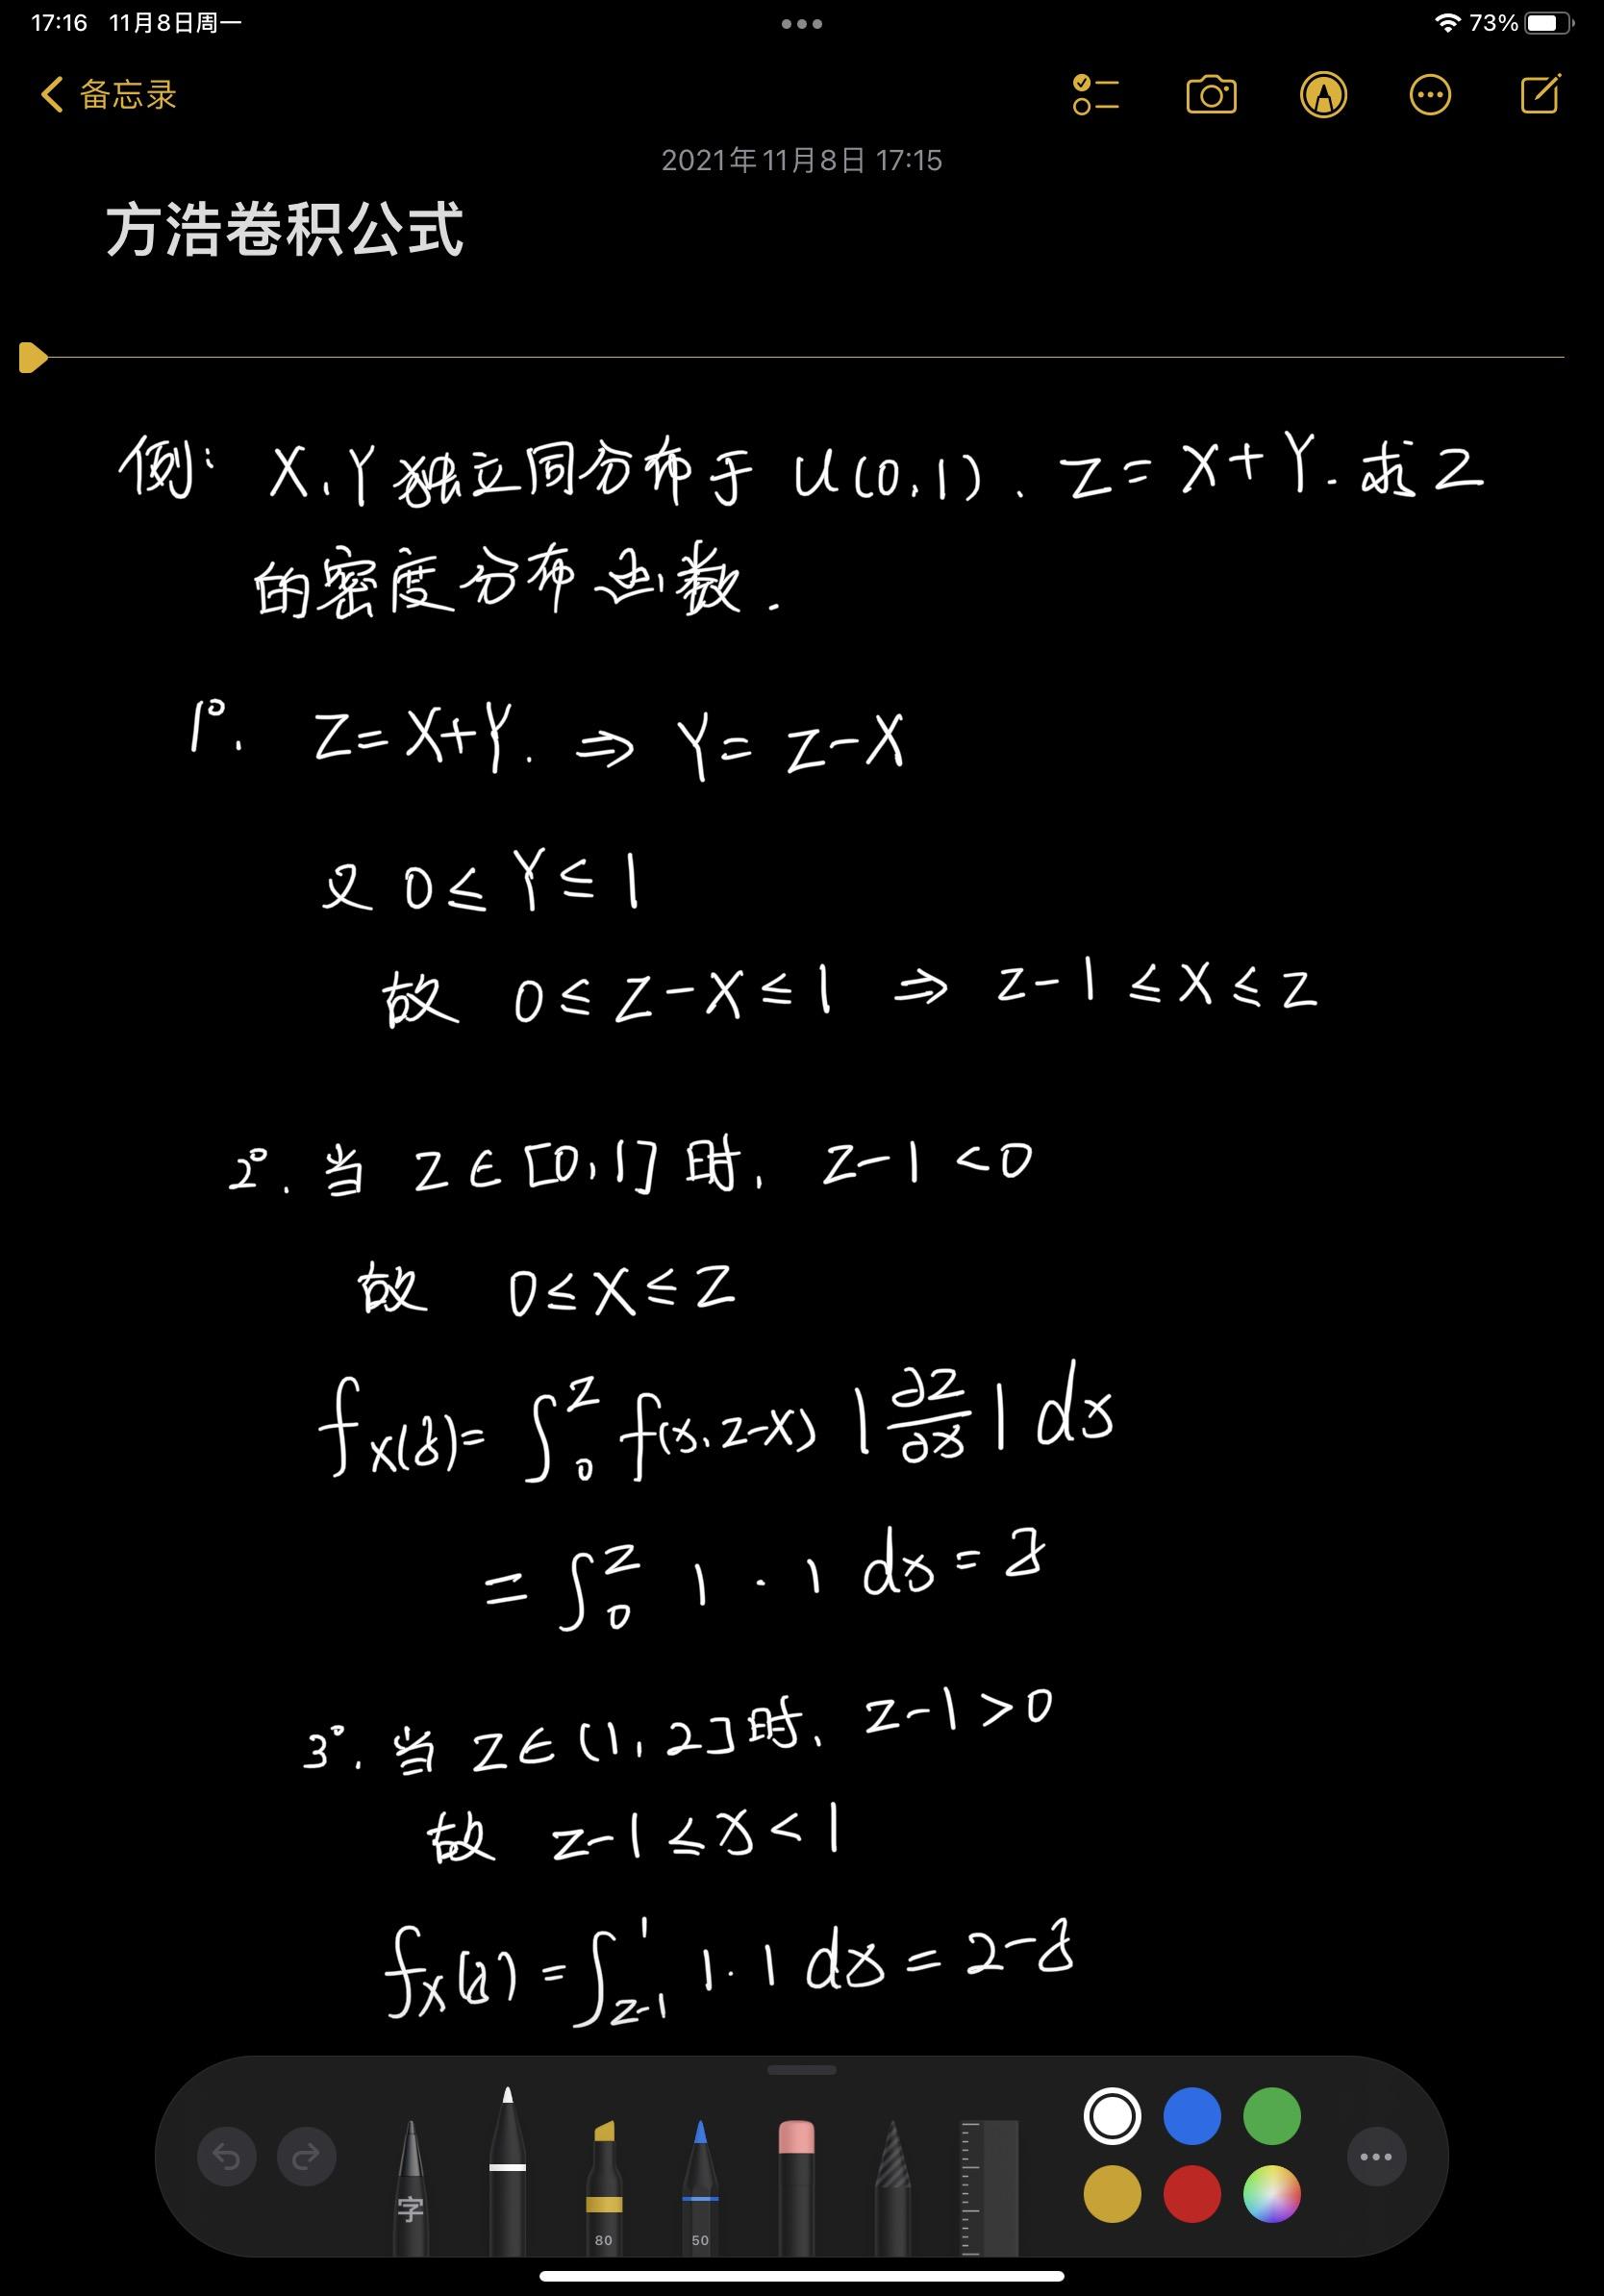 17:16 11月8日周一 73%
备忘录
2021年11月8日 17:15
方浩卷积公式
例: X,Y独立同分布于 U(0,1). Z=X+Y. 求Z
的密度分布函数.
1°. Z=X+Y. ⇒ Y=Z-X
又 0≤Y≤1
故 0≤Z-X≤1 ⇒ z-1≤X≤z
2°. 当 Z∈[0,1]时, z-1<0
故 0≤X≤Z
f_X(z)= ∫_0^z f(x, z-x) |∂z/∂x| dx
= ∫_0^z 1·1 dx = z
3°. 当 Z∈(1,2]时, z-1>0
故 z-1≤x<1
f_X(z)=∫_{z-1}^1 1·1 dx = 2-z
字 80 50